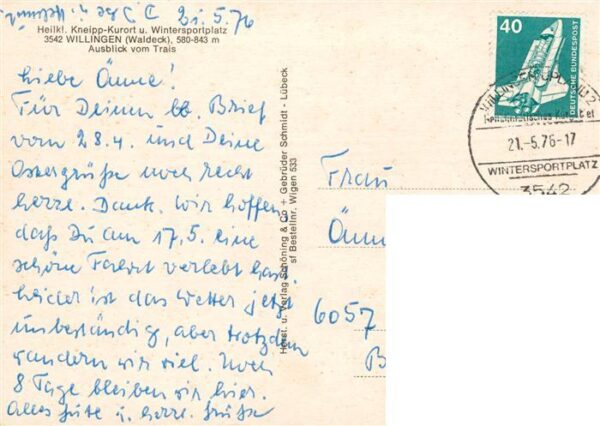 21.5.76
Heilkl. Kneipp-Kurort u. Wintersportplatz
3542 WILLINGEN (Waldeck), 580-843 m
Ausblick vom Trais
Liebe Änne!
Für Deinen lb. Brief
vom 28.4. und Deine
Ostergrüße noch recht
herzl. Dank. Wir hoffen,
daß Du am 17.5. eine
schöne Fahrt verlebt hast.
Leider ist das Wetter jetzt
unbeständig, aber trotzdem
wandern wir viel. Noch
8 Tage bleiben wir hier.
Alles Gute u. herzl. Grüße
Horst. u. Verlag Schöning & Co + Gebrüder Schmidt - Lübeck
sf Bestellnr. Wigen 533
40
DEUTSCHE BUNDESPOST
21.-5.76-17
WINTERSPORTPLATZ
3542
Frau
Änne
6057